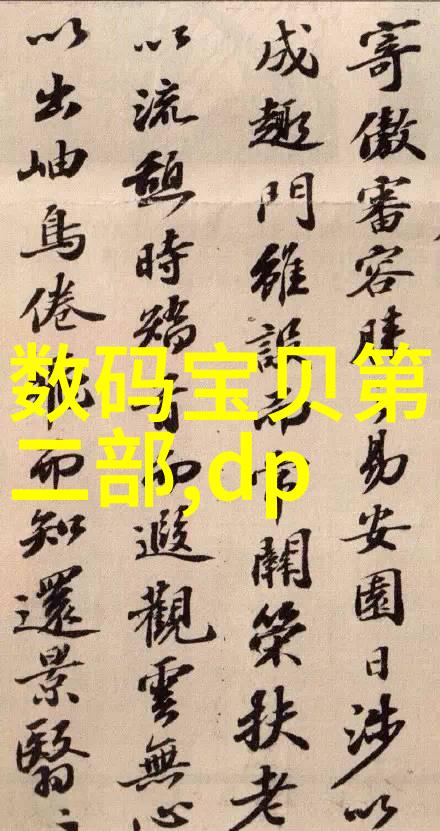 数码宝贝第
二部,dp
寄傲審容膝易安園日涉以
成趣門雖設而常關策扶老
以流憩時矯首而遐觀雲無心
以出岫鳥倦飛而知還景翳